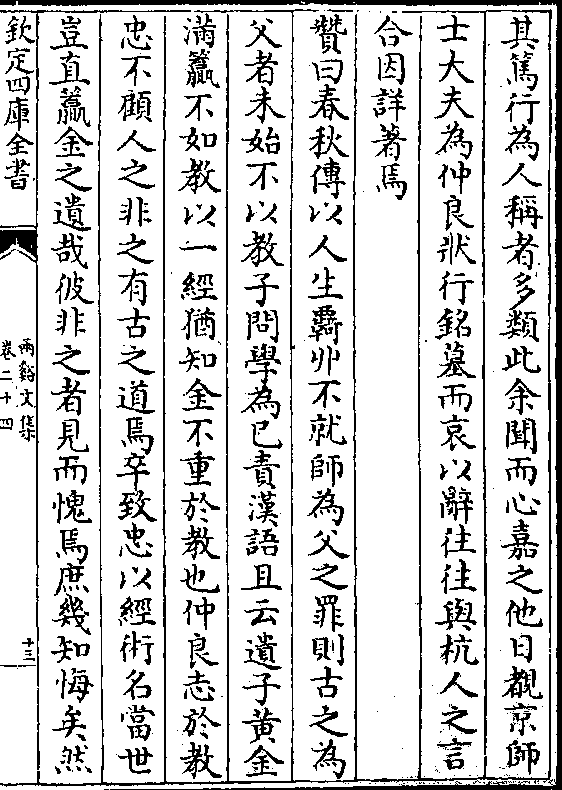 其篤行為人稱者多類此余聞而心嘉之他日覩京師
士大夫為仲良狀行銘墓而哀以辭往往與杭人之言
合因詳著焉
贊曰春秋傳以人生覉丱不就師為父之罪則古之為
父者未始不以教子問學為已責漢語且云遺子黃金
滿籯不如教以一經猶知金不重於教也仲良志於教
忠不顧人之非之有古之道焉卒致忠以經術名當世
豈直籯金之遺哉彼非之者見而愧焉庶幾知悔矣然
欽定四庫全書
兩谿文集
卷二十四
十三